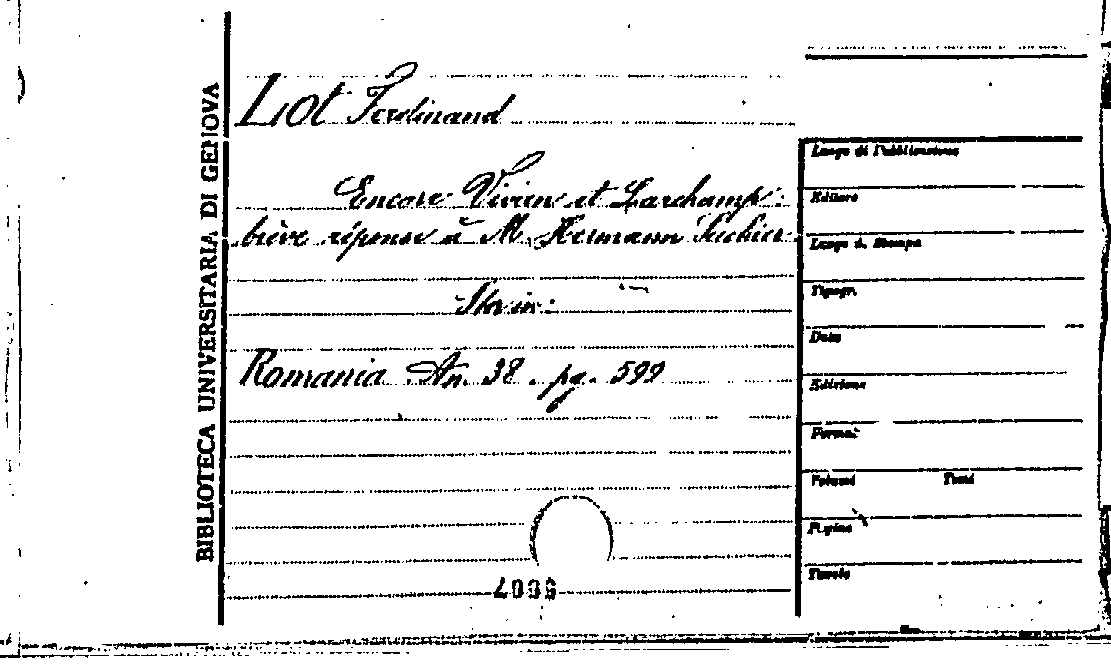 BIBLIOTECA UNIVERSITARIA DI GENOVA
Lot Ferdinand
Encore Vivien et Larchamp:
brève réponse à M. Hermann Suchier
Sta in:
Romania An. 38. pg. 599
Luogo di Pubblicazione
Editore
Luogo di Stampa
Tipogr.
Data
Edizione
Format
Volumi Tomi
Pagine
Tavole